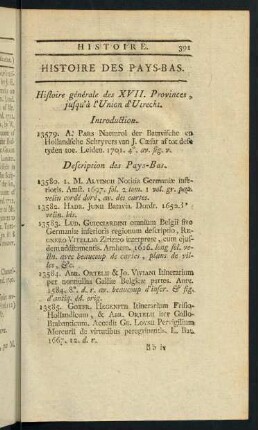 HISTOIRE. 391
HISTOIRE DES PAYS-BAS.
Histoire générale des XVII. Provinces,
jusqu'à l'Union d'Utrecht.
Introduction.
13579. A. Pars Naamrol der Batavische en
Hollandsche Schryvers van J. Cæsar af tot dese
tyden toe. Leiden. 1701. 4°. av. fig. v.
Description des Pays-Bas.
13580. I. M. Alting Notitia Germaniæ infe-
rioris. Amst. 1697. fol. 2 tom. 1 vol. gr. pap.
velin cordé doré, av. des cartes.
13582. Hadr. Junii Batavia. Dordr. 1652. 8°.
velin. bis.
13583. Lud. Guicciardini omnium Belgii sive
Germaniæ inferioris regionum descriptio,
Vitellio Ziriczeo interprete, cum ejus-
dem additamentis. Arnhem. 1616. long fol. ve-
lin. avec beaucoup de cartes, plans de vil-
les, &c.
13584. Abr. Ortelii & Jo. Viviani Itinerarium
per nonnullas Galliæ Belgicæ partes. Antv.
1584. 8°. d. r. av. beaucoup d'infer. & fig.
d'antiq. dd. orig.
13585. Gotfr. Hegeniti Itinerarium Frisio-
Hollandicum, & Abr. Ortelii iter Gallo-
Brabanticum. Accedit Ge. Loysii Pervigilium
Mercurii de virtutibus peregrinantis. L. Bat.
1667. 12. d. r.
Bb iv